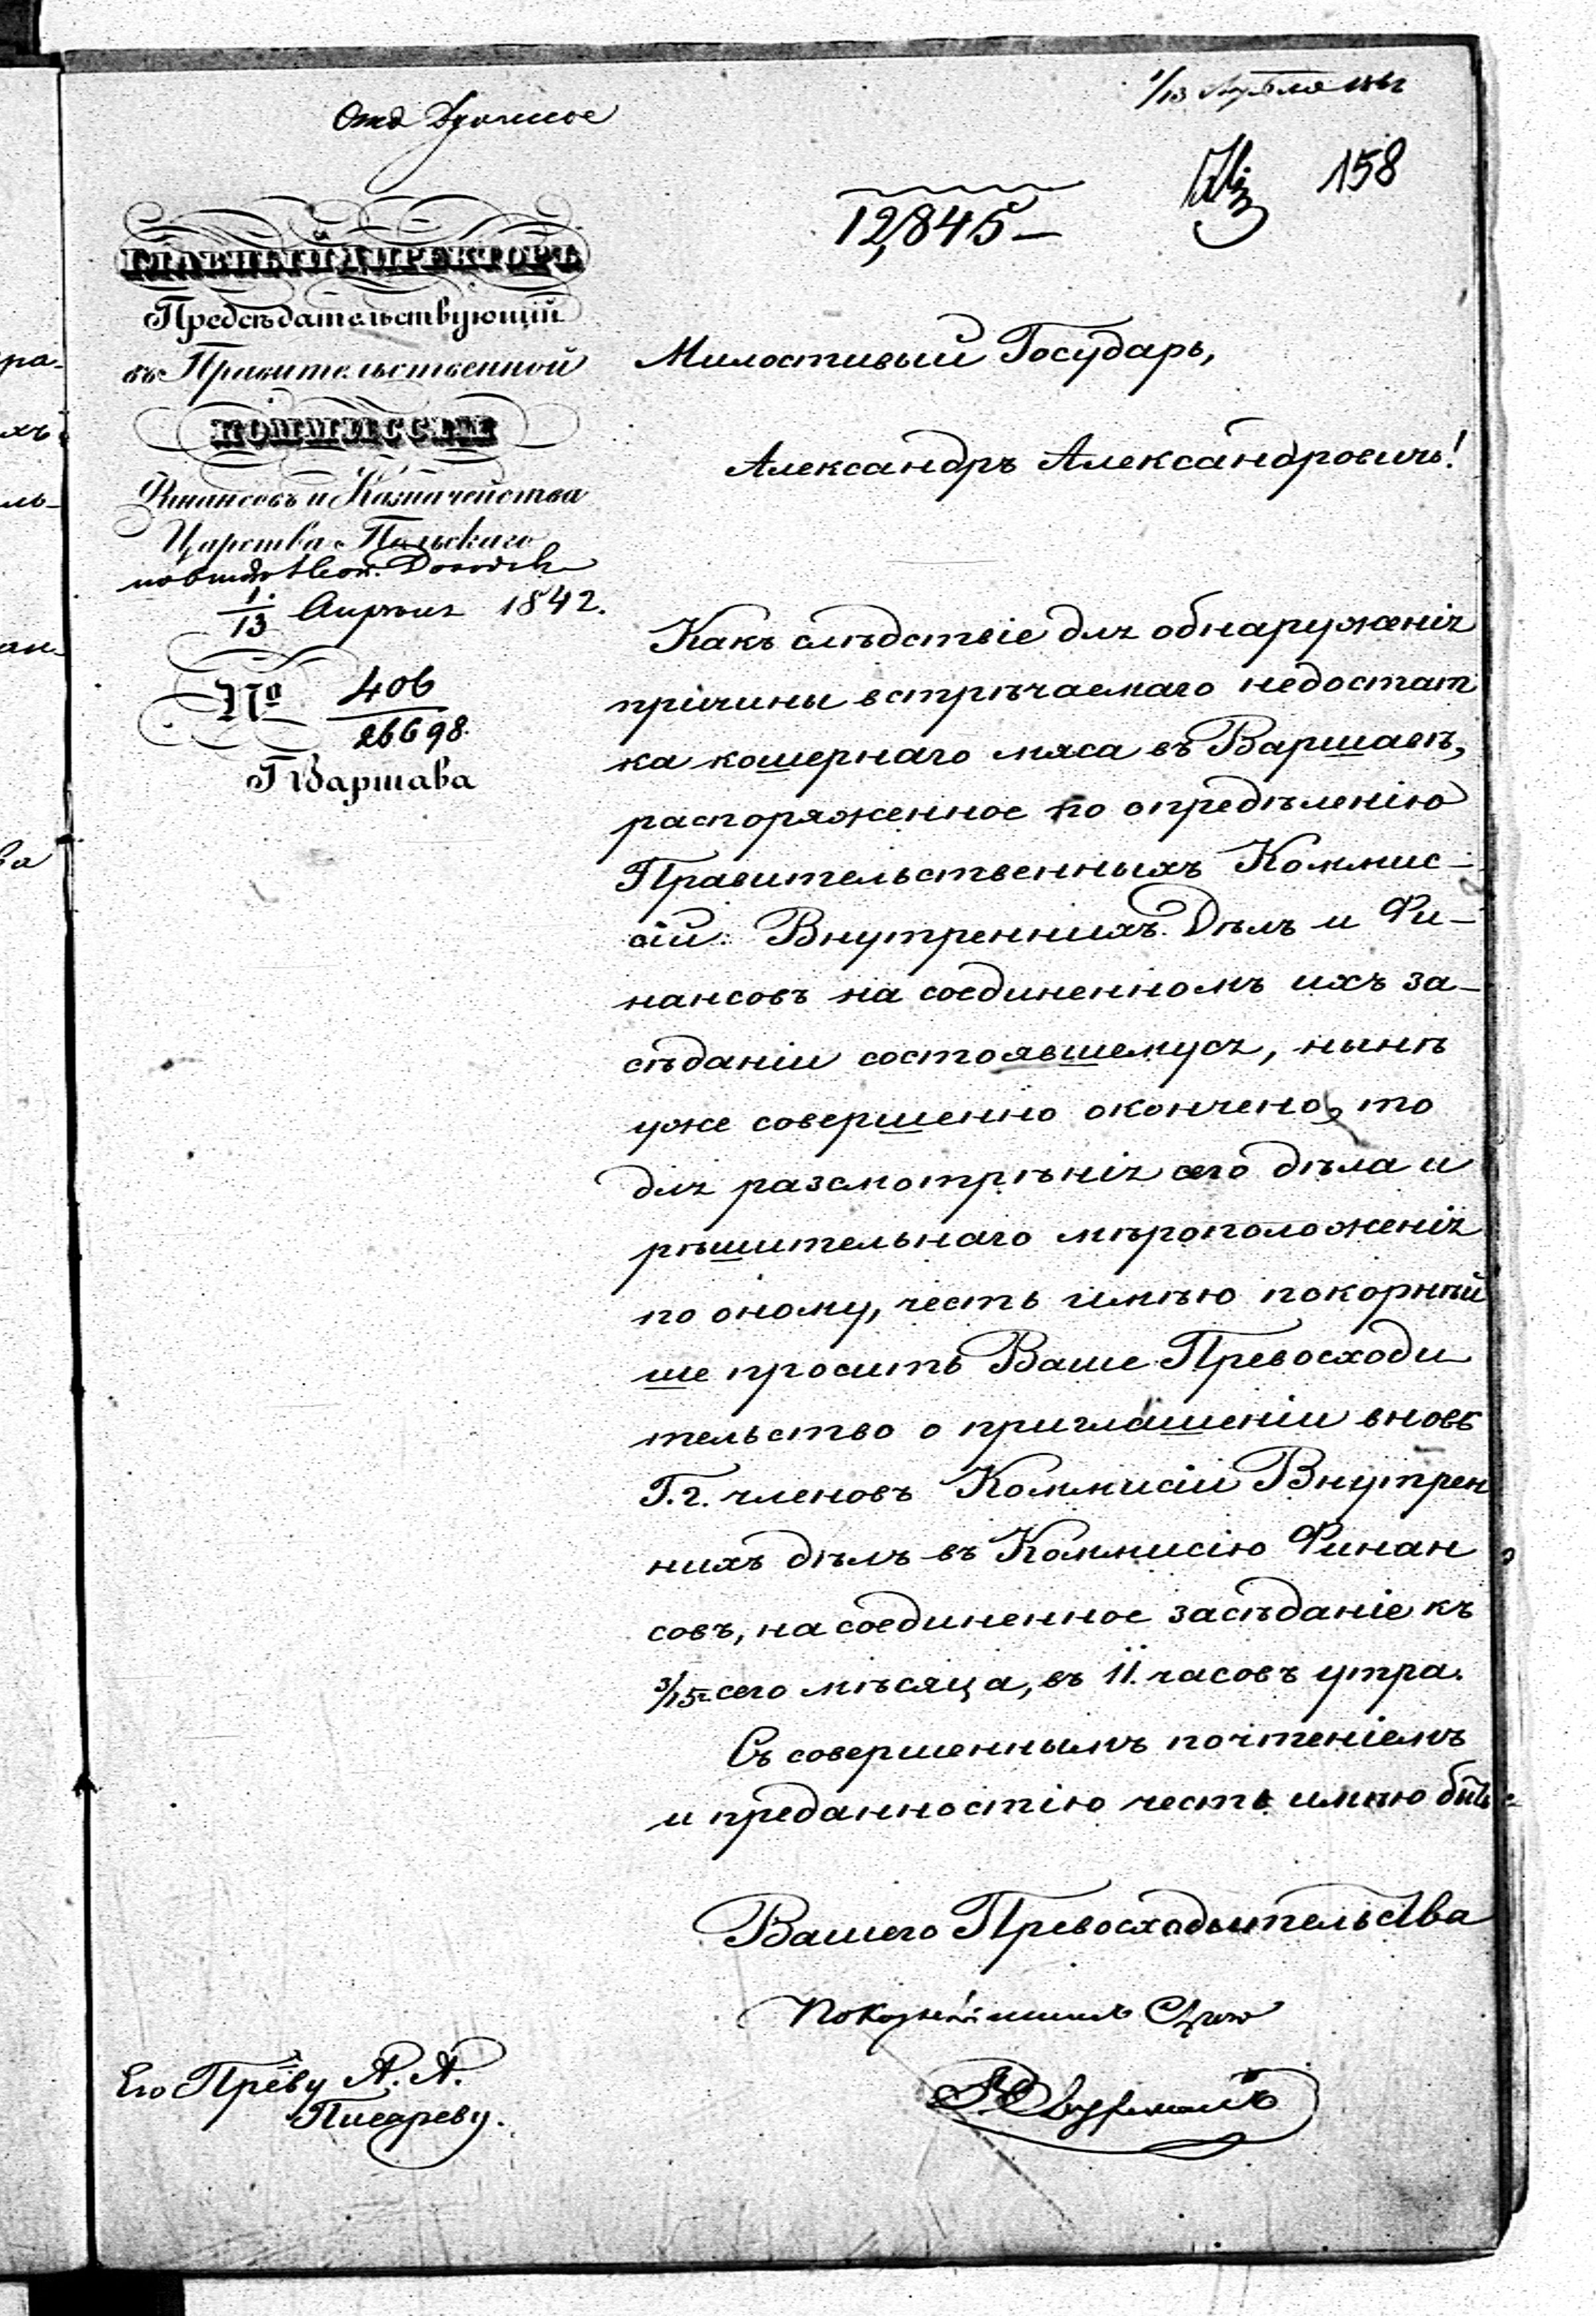 1/13 Апрѣля 1842
158
12,845 —
ГЛАВНЫЙ ДИРЕКТОРЪ
Предсѣдательствующій
въ Правительственной
КОММИССІИ
Финансовъ и Казначейства
Царства Польскаго
1/13 Апрѣля 1842.
№ 406/26698.
Г. Варшава
Милостивый Государь,
Александръ Александровичь!
Какъ слѣдствіе для обнаруженія
прічины встрѣчаемаго недостат
ка кошернаго мяса въ Варшавѣ,
распоряженное по опредѣленію
Правительственныхъ Коммис-
сій: Внутреннихъ Дѣлъ и Фи-
нансовъ на соединенномъ ихъ за-
сѣданіи состоявшемуся, нынѣ
уже совершенно окончено, то
для разсмотрѣнія сего дѣла и
рѣшительнаго мѣроположенія
по оному, честь имѣю покорнѣй
ше просить Ваше Превосходи
тельство о приглашеніи вновь
Г.г. членовъ Коммисіи Внутрен
нихъ дѣлъ въ Коммисію Финан
совъ, на соединенное засѣданіе къ
3/15 сего мѣсяца, въ 11. часовъ утра.
Съ совершеннымъ почтеніемъ
и преданностію честь имѣю быть
Вашего Превосходительства
покорнѣйшимъ
Его Прев֊ву А. А.
Писареву.